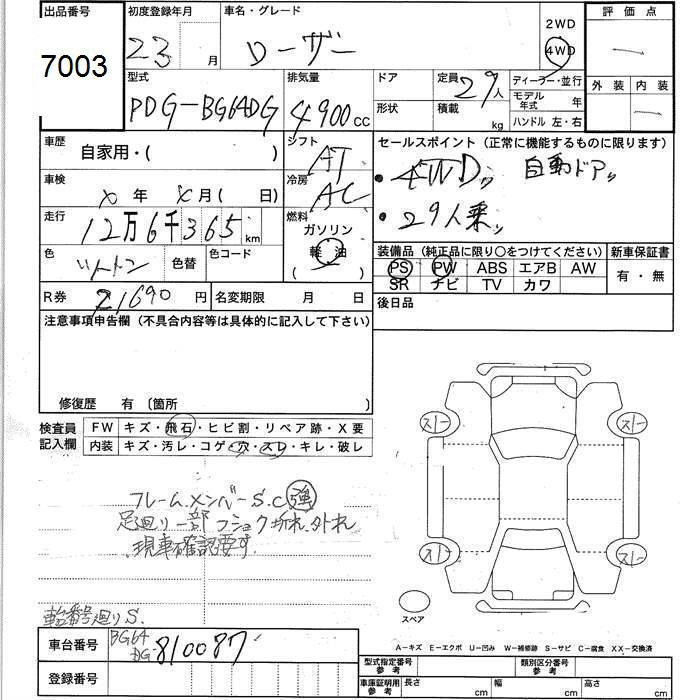 出品番号 7003
初度登録年月 23 月
車名・グレード ローザー
2WD 4WD
評価点 —
型式 PDG-BG64DG
排気量 4900 CC
ドア
形状
定員 29 人
積載 kg
ディーラー・並行
モデル年式 年
ハンドル 左・右
外装 内装 —
車歴 自家用・( )
シフト AT
冷房 AC
車検 X 年 X 月 ( 日)
走行 12万6千365 km
燃料 ガソリン 軽油 ( )
色 ツートン 色替 色コード
R券 21690 円 名変期限 月 日
セールスポイント (正常に機能するものに限ります)
・4WD〃 自動ドア〃
・29人乗〃
装備品 (純正品に限り○をつけてください) 新車保証書
PS PW ABS エアB AW 有・無
SR ナビ TV カワ
後日品
注意事項申告欄 (不具合内容等は具体的に記入して下さい)
修復歴 有 〔箇所 〕
検査員記入欄
FW キズ・飛石・ヒビ割・リペア跡・X要
内装 キズ・汚レ・コゲ・穴・スレ・キレ・破レ
フレームメンバーS.C強
足廻り一部フショク折れ、外れ
現車確認要す.
車台番号廻りS.
スレー スレー
スレー スレー
スペア
A-キズ E-エクボ U-凹み W-補修跡 S-サビ C-腐食 XX-交換済
車台番号 BG64DG-810087
登録番号
型式指定番号 参考 類別区分番号 参考
車庫証明用 参考 長さ cm 幅 cm 高さ cm